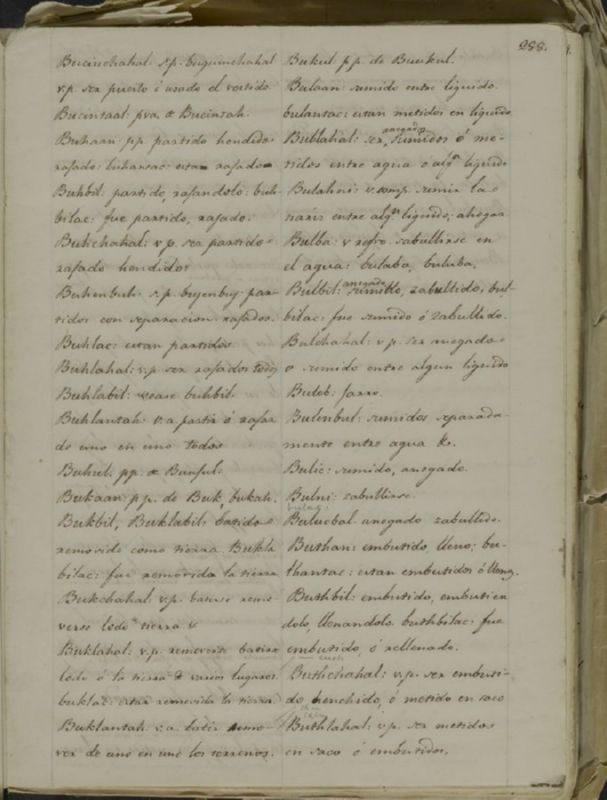 288.
Bucinchahal: s.p. buquinchahal
v.p. ser puerto ó usado el vestido
Bucintaal: pva. de Bucintah.
Buhaan: pp partido hendido
rafado: buhantac: estan rafados
Buhbil: partido, rafandolo: buh-
bilac: fue partido, rafado.
Buhchahal: v.p. ser partido
rafado hendidos
Buhenbuh: s.p. bujenbuj par-
tidos con separacion rafados.
Buhlac: estan partidos
Buhlahal: v.p. ser rafados todos
Buhlabil: vease buhbil
Buhlantah: v.a. partir ó rafar
de uno en uno todos
Buhul: pp. de
Bukaan: p.p. de Buk, bukah.
Bukbil, Buklabil: batido
removido como tierra. Bukla
bilac: fue removida la tierra
Bukchahal: v.p. batirse remo-
verse lodo tierra &
Buklahal: v.p. removerse batirse
lodo ó la tierra varios lugares
buklac: estar removida la tierra
Buklantah: v.a. batir remo-
ver de uno en uno los terrenos.
Bukul p.p. de Buukul.
Bulaan: sumido entre liquido.
bulantac: estan metidos en liquido
Bulahal: ser anegados sumidos ó me-
tidos entre agua ó algn liquido
Bulahni: v. comp. sumir la
naris entre algn liquido, ahogar
Bulba: v. refvo. sabullirse en
el agua: bulaba, buluba.
Bulbil: anegado sumido, zabullido, bul-
bilac: fue sumido ó zabullido.
Bulchahal: v.p. ser anegado
o sumido entre algun liquido
Buleb: jarro.
Bulenbul: sumidos separada-
mente entre agua &c.
Bulic: sumido, anegado.
Bulni: zabullirse.
Bulucbal anegado zabullido.
Buthan: embutido, lleno; bu-
thantac: estan embutidos ó llenos.
Buthbil: embutido, embutien
dolo, llenandolo. buthbilac: fue
embutido, ó rellenado.
Buthchahal: v.p. ser embuti-
do henchido, ó metido en saco
Buthlahal: v.p. ser metidos
en saco ó embutidos.